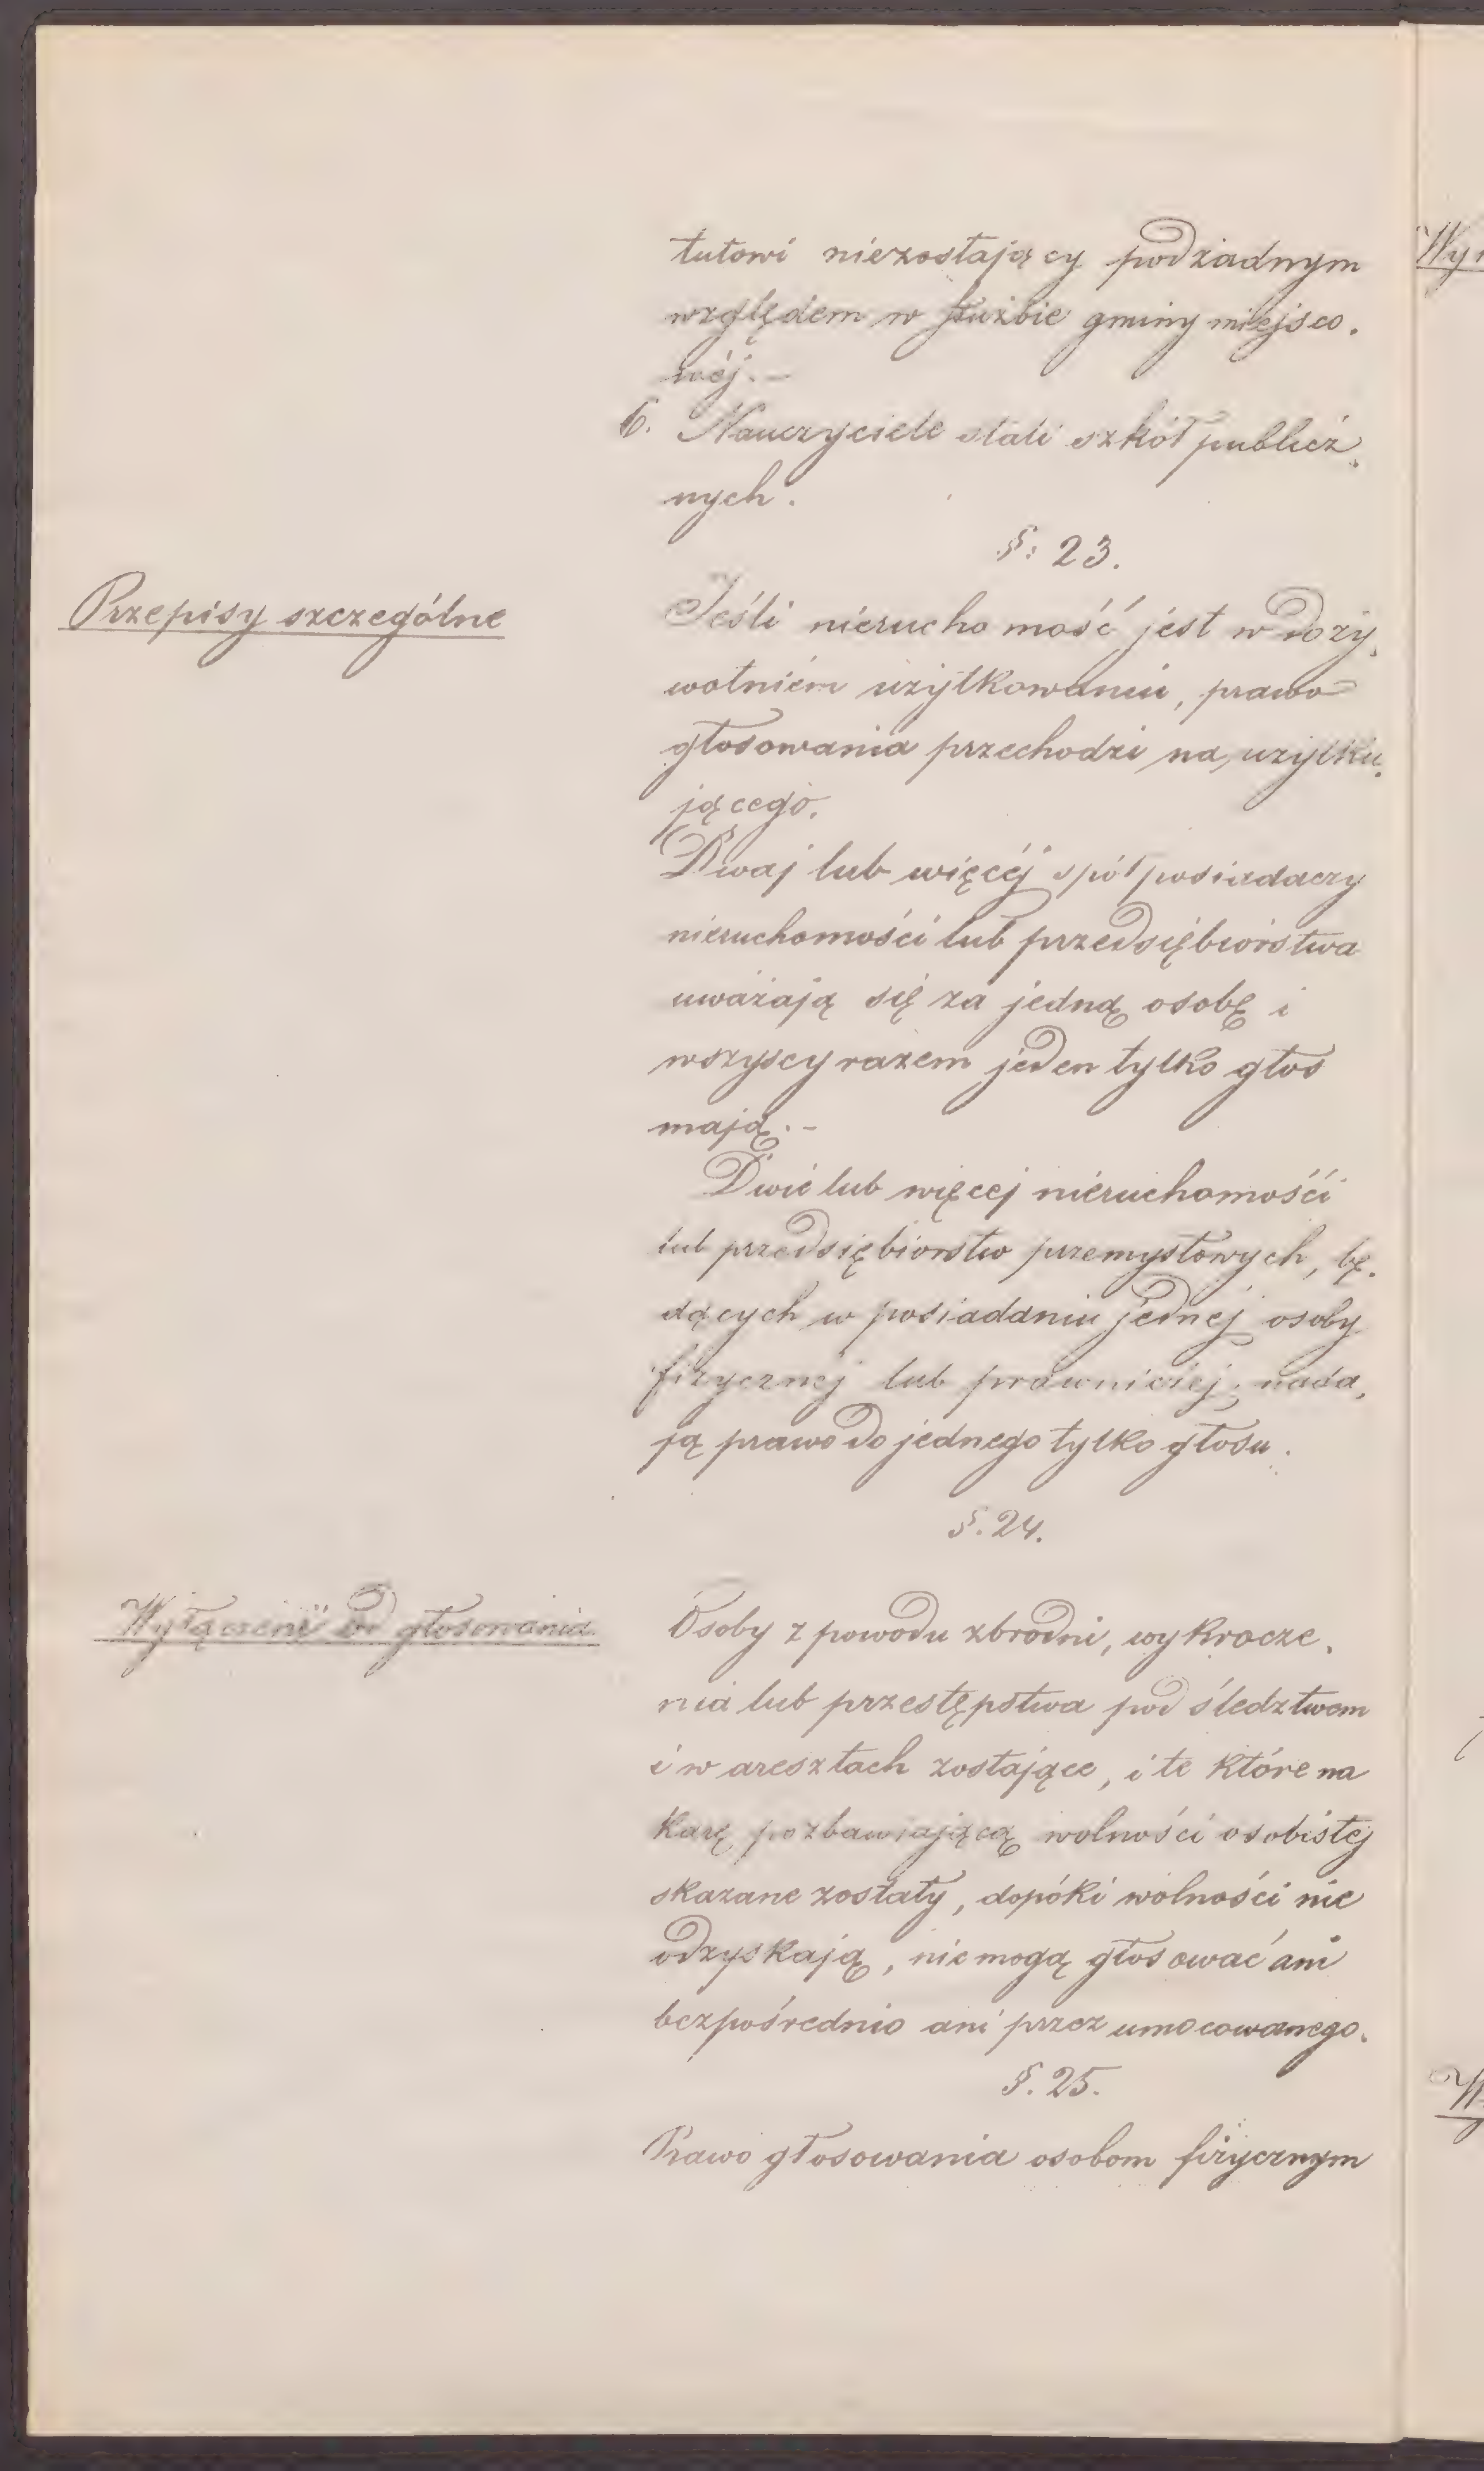 tutowi niezostający pod żadnym
względem w służbie gminy miejsco.
wéj. –
6. Nauczyciele stali szkół publicz.
nych.
§: 23.
Przepisy szczególne
Jeśli nieruchomość jest w doży.
wotniém użytkowaniu, prawo
głosowania przechodzi na użytku.
jącego.
Dwaj lub więcéj spółposiadaczy
nieruchomości lub przedsiębiorstwa
uważają się za jedną osobę i
wszyscy razem jeden tylko głos
mają. –
Dwie lub więcej nieruchomości
lub przedsiębiorstw przemysłowych, bę.
dących w posiadaniu jednej osoby
fizycznej lub prawniczej, nada,
ją prawo do jednego tylko głosu.
§. 24.
Wyłączeni od głosowania
Osoby z powodu zbrodni, wykrocze.
nia lub przestępstwa pod śledztwem
i w aresztach zostające, i te które na
karę pozbawiającą wolności osobistej
skazane zostały, dopóki wolności nie
odzyskają, nie mogą głosować ani
bezpośrednio ani przez umocowanego.
§. 25.
Prawo głosowania osobom fizycznym